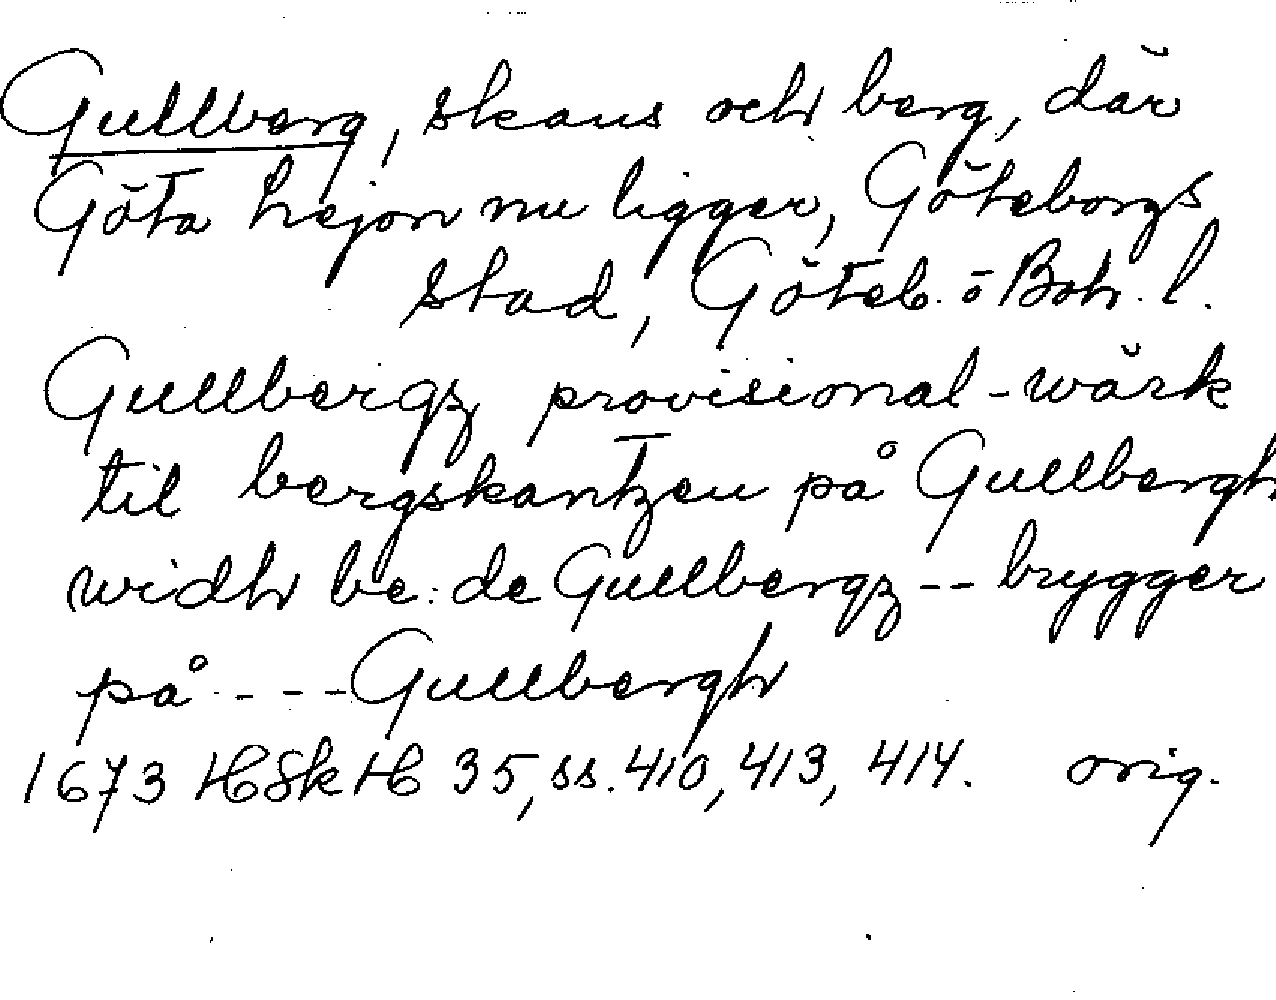 Gullberg, skans och berg, där
Göta lejon nu ligger, Göteborgs
stad, Göteb. o Boh. l.
Gullbergz provisional-wärk
til bergskantzen på Gullbergh
widh be: de Gullbergz -- brygger
på - - - - Gullbergh
1673 HSkH 35, ss. 410, 413, 414. orig.